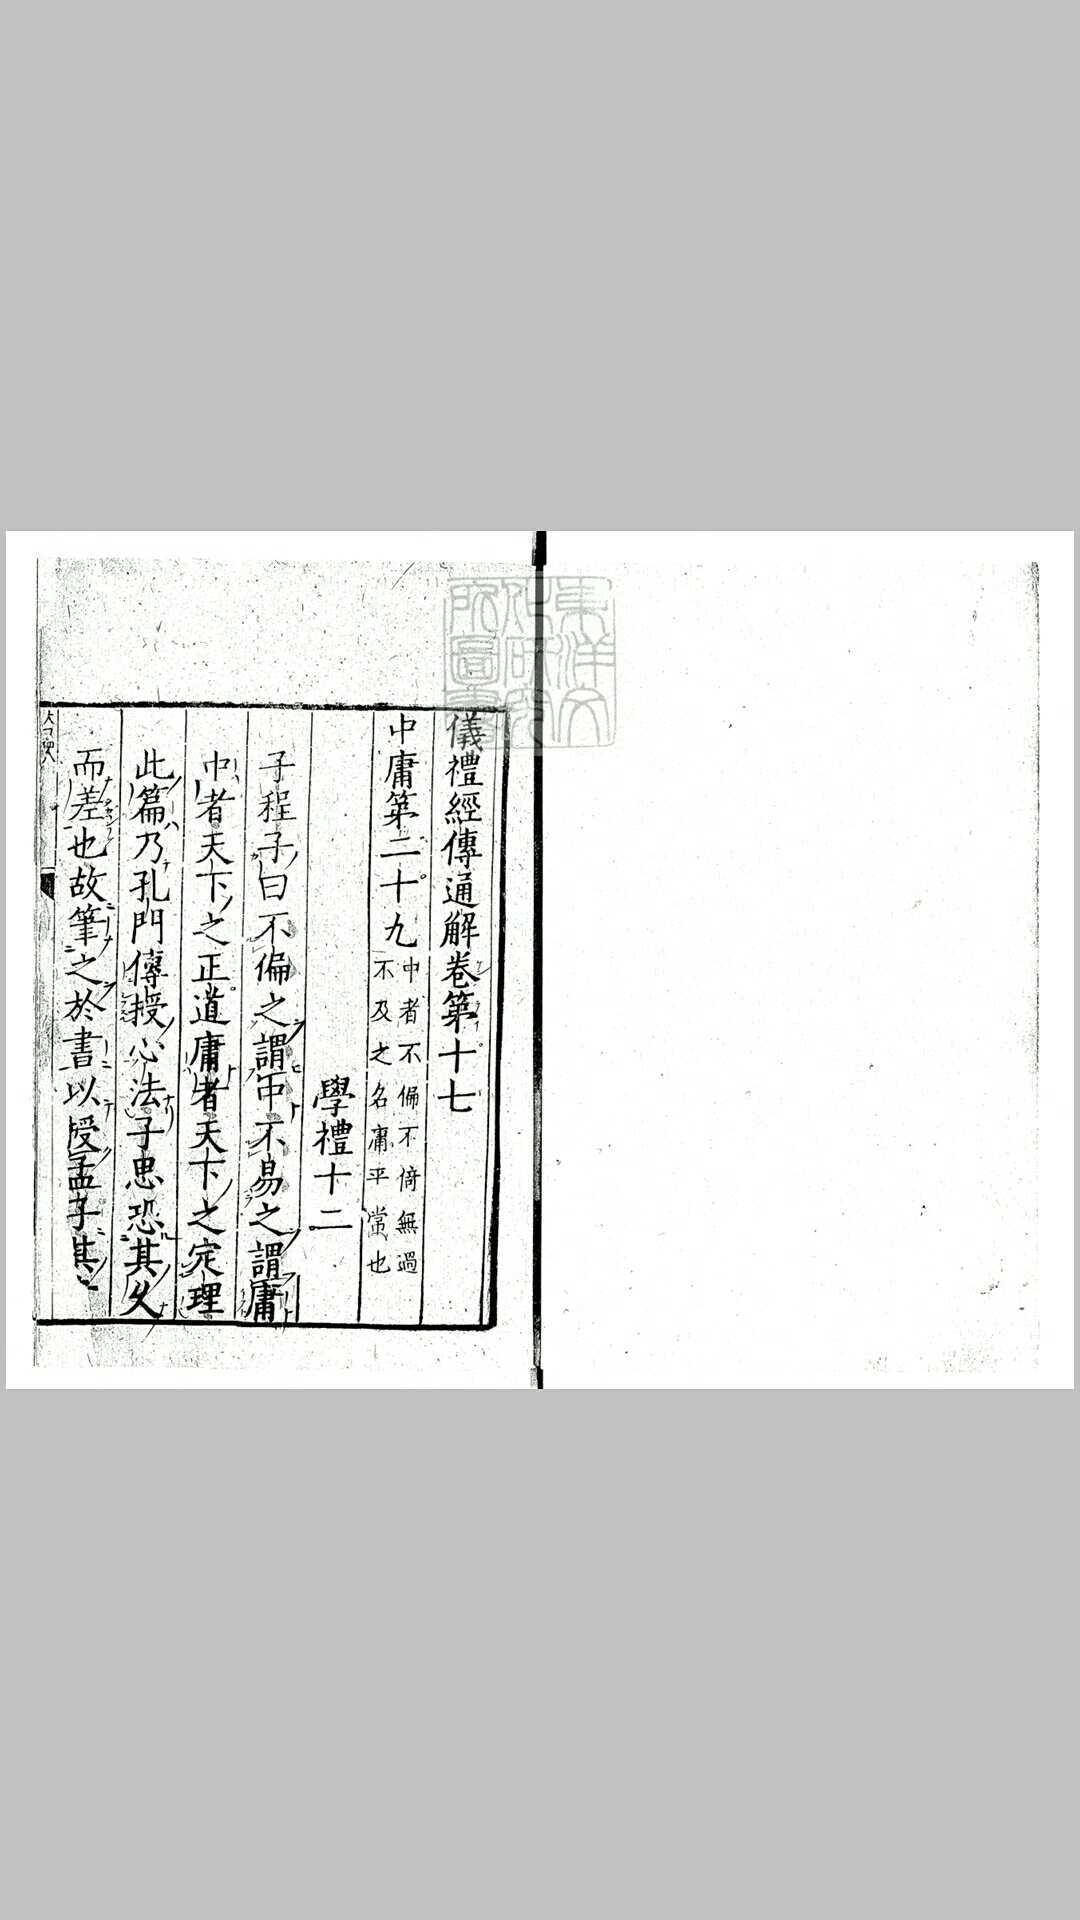 儀禮經傳通解卷第十七
中庸第二十九
中者不偏不倚無過
不及之名庸平常也
學禮十二
子程子曰不偏之謂中不易之謂庸
中者天下之正道庸者天下之定理
此篇乃孔門傳授心法子思恐其久
而差也故筆之於書以授孟子其